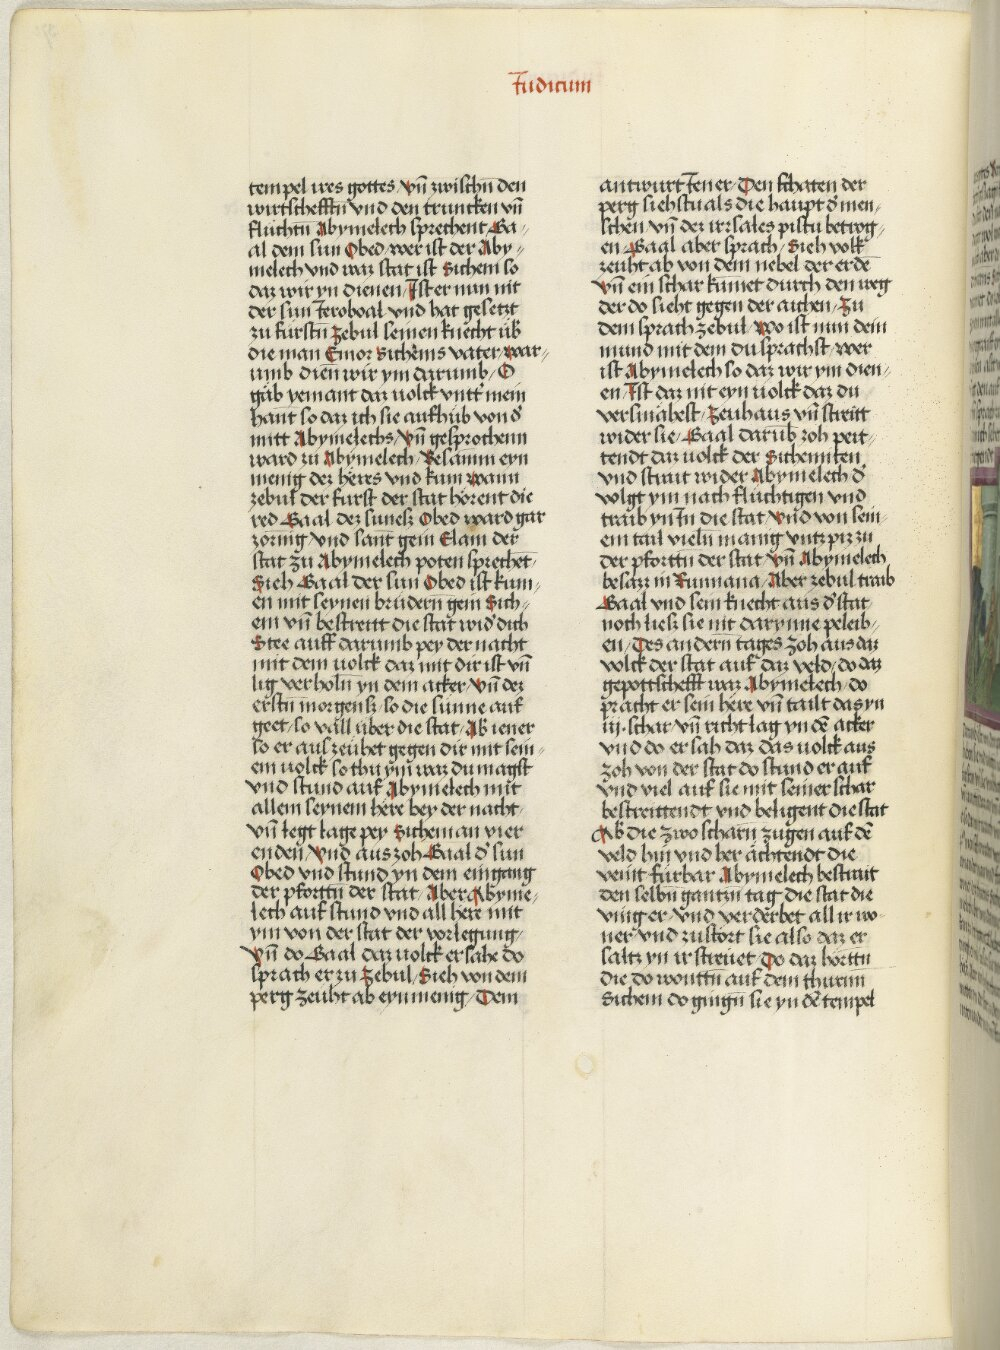 Judicum
tempel ires gottes / Vn̄ zwischn̄ den
wirtschefftn̄ vnd den truncken vn̄
fluchtn̄ Abymelech sprechent / Ga⸗
al dem sun Obed / wer ist der Aby⸗
melech vnd waz stat ist Sichem so
daz wir yn dienen / Ist er nun nit
der sun Jeroboal vnd hat gesetzt
zu furstn̄ Zebul seinen knecht üb̄
die man Emor Sichēms vater / war⸗
umb dien̄ wir ym darumb / O
gäb yemant daz uolck vnt̄ mein
hant so daz ich sie aufhüb von d̄
mitt Abymelechs / Vn̄ gesprochenn
ward zu Abymelech / Besāmm eyn
menig dez heres vnd kum wann
zebul der furst der stat hörent die
red Gaal dez sunesz Obed ward gar
zornig vnd sant gein Elam der
stat zu Abymelech poten sprechet
Sieh Gaal der sun Obed ist kum⸗
en mit seynen brüdern gein Sich⸗
em vn̄ bestreitt die stat wid̄ dich
Stee auff darumb pey der nacht
mit dem uolck daz mit dir ist vn̄
lig verholn̄ yn dem acker / Vn̄ dez
erstn̄ morgensz so die sunne auf
geet / so väll über die stat / Ab̄ iener
so er aus zeühet gegen dir mit sein⸗
em uolck so thu ym waz du magst
vnd stund auf Abymelech mit
allem seynem here bey der nacht
vn̄ legt lage pey Sichem an vier
enden / Vnd aus zoh Gaal d̄ sun
Obed vnd stund yn dem eingang
der pforttn̄ der stat / Aber Abyme⸗
lech auf stund vnd all here mit
ym von der stat der vorlegung
Vn̄ do Gaal daz uolck ersahe do
sprach er zu Zebul / Sieh von dem
perg zeuht ab eyn menig / Dem
antwurt Jener / Den schaten der
perg siehstu als die haupt d̄ men⸗
schen / vn̄ dez irrsales pistu betrog⸗
en / Gaal aber sprach / Sieh volk
zeuht ab von dem nebel der erdē
Vn̄ ein schar kumet durch den weg
der do sieht gegen der aichen / Zu
dem sprach Zebul / Wo ist nun dein
mund mit dem du sprachst / wer
ist Abymelech so daz wir ym dien⸗
en / Ist daz nit eyn uolck daz du
versmähest / Zeuh aus vn̄ streitt
wider sie / Gaal darūb zoh peit⸗
tendt daz uolck der Sichemiten
vnd strait wider Abymelech d̄
volgt ym nach fluchtigen vnd
traib yn In die stat / Vnd von sein⸗
em tail vieln manig vntz piz zu
der pforttn̄ der stat / Vn̄ Abymelech
besazz in Rumana / Aber zebul traib
Gaal vnd sein knecht aus d̄ stat
noch liesz sie nit darynne peleib⸗
en / Des andern tages zoh aus daz
volck der stat auf daz veld / do daz
gepottschefft waz Abymelech / do
pracht er sein here vn̄ tailt das yn
iij. schar vn̄ richt lag yn dē acker
vnd do er sah daz das uolck aus
zoh von der stat do stund er auf
vnd viel auf sie mit seiner schar
bestreittendt vnd beligent die stat
Ab̄ die zwo scharn zugen auf dē
veld hin vnd her ächtendt die
veint fürbar Abymelech bestrait
den selbn̄ gantzn̄ tag die stat die
ving er / Vnd verderbet all ir wo⸗
ner vnd zustört sie also daz er
saltz yn ir streuet / Do daz hörttn̄
die do wonttn̄ auf dem thurnn
Sichem do gingn̄ sie yn dē tempel